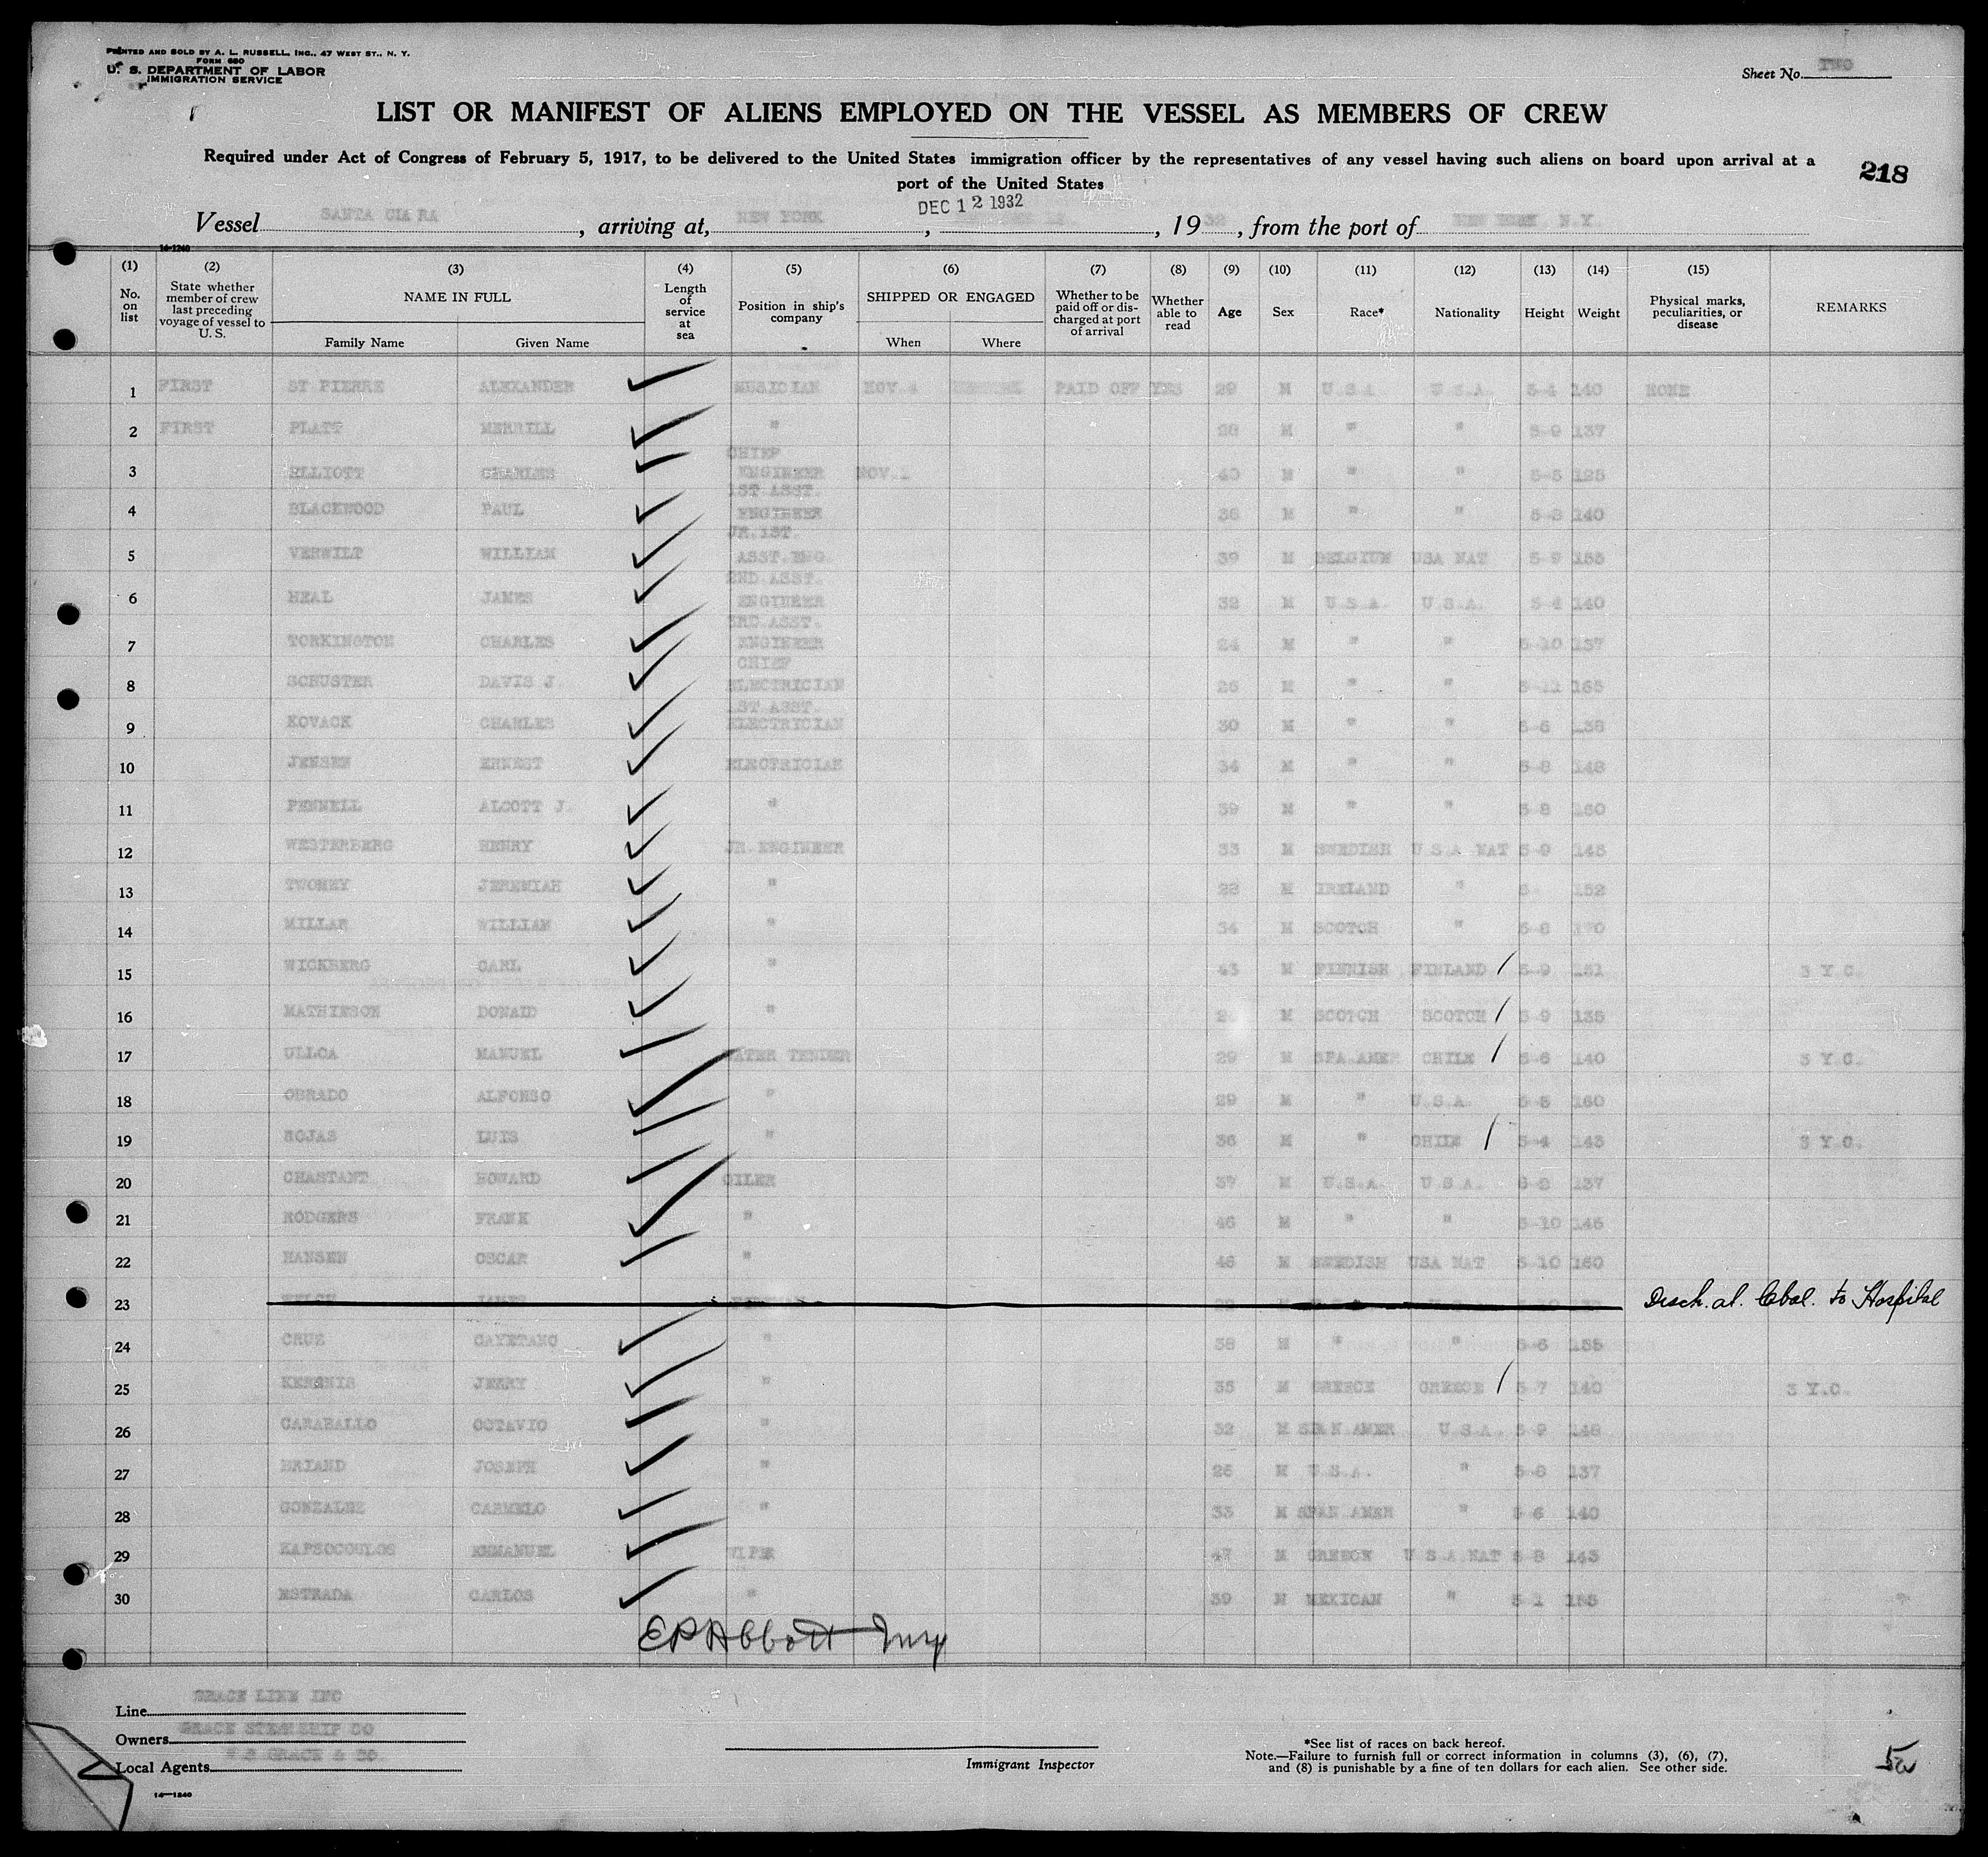 PRINTED AND SOLD BY A. L. RUSSELL, INC., 47 WEST ST., N. Y.
FORM 680
U. S. DEPARTMENT OF LABOR
IMMIGRATION SERVICE
Sheet No. TWO
LIST OR MANIFEST OF ALIENS EMPLOYED ON THE VESSEL AS MEMBERS OF CREW
Required under Act of Congress of February 5, 1917, to be delivered to the United States immigration officer by the representatives of any vessel having such aliens on board upon arrival at a
port of the United States
218
DEC 12 1932
Vessel SANTA CLARA, arriving at, NEW YORK, , 19 32, from the port of NEW YORK, N.Y.
14-1240
(1) (2) (3) (4) (5) (6) (7) (8) (9) (10) (11) (12) (13) (14) (15)
No. on list State whether member of crew last preceding voyage of vessel to U. S. NAME IN FULL Family Name Given Name Length of service at sea Position in ship's company SHIPPED OR ENGAGED When Where Whether to be paid off or discharged at port of arrival Whether able to read Age Sex Race* Nationality Height Weight Physical marks, peculiarities, or disease REMARKS
1 FIRST ST PIERRE ALEXANDER MUSICIAN NOV. 4 PAID OFF YES 29 M U.S.A U.S.A. 5-4 140 NONE
2 FIRST PLATT MERRILL " 28 M " " 5-9 137
3 ELLIOTT CHARLES CHIEF ENGINEER NOV. 1 40 M " " 5-5 125
4 BLACKWOOD PAUL 1ST ASST. ENGINEER 36 M " " 140
5 VERWILT WILLIAM JR. 1ST. ASST. ENG. 39 M BELGIUM USA NAT 5-9
6 NEAL JAMES 2ND ASST. ENGINEER 32 M U.S.A. U.S.A. 5-4 140
7 TORKINGTON CHARLES 3RD ASST. ENGINEER 24 M " " 5-10 137
8 SCHUSTER DAVIS J CHIEF ELECTRICIAN 26 M " " 5-11 165
9 KOVACK CHARLES 1ST ASST. ELECTRICIAN 30 M " " 5-6 138
10 JENSEN ERNEST ELECTRICIAN 34 M " " 5-8 148
11 PENNELL ALCOTT J. " 39 M " " 5-8 160
12 WESTERBERG HENRY JR. ENGINEER 33 M SWEDISH U.S.A NAT 5-9 145
13 TWOMEY JEREMIAH " M IRELAND " 152
14 MILLAR WILLIAM " 34 M SCOTCH " 5-8 170
15 WICKBERG CARL " 43 M FINNISH FINLAND 5-9 151 3 Y.C.
16 MATHIESON DONALD " M SCOTCH SCOTCH 5-9 135
17 ULLOA MANUEL WATER TENDER 29 M SPA.AMER CHILE 5-6 140 3 Y.C.
18 OBRADO ALFONSO " 29 M " U.S.A. 5-5 160
19 ROJAS LUIS " 36 M " CHILE 5-4 143 3 Y.C.
20 CHASTANT HOWARD OILER 37 M U.S.A. U.S.A. 137
21 RODGERS FRANK " 46 M " " 5-10 145
22 HANSEN OSCAR " 46 M SWEDISH USA NAT 5-10 160
23 WELCH JAMES FIREMAN Disch. at Cbal. to Hospital
24 CRUZ CAYETANO " 38 M " " 5-6 155
25 JERRY " 35 M GREECE GREECE 5-7 140 3 Y.C.
26 CARABALLO OCTAVIO " 32 M SPAN AMER U.S.A. 5-9 148
27 BRIAND JOSEPH " 26 M U.S.A. " 5-8 137
28 GONZALEZ CARMELO " 33 M SPAN AMER " 5-6 140
29 KAPSOCOULOS EMMANUEL WIPER 47 M GREECE U.S.A NAT 5-8 143
30 ESTRADA CARLOS " 39 M MEXICAN " 5-1
E P Abbott Insp
Line GRACE LINE INC
Owners GRACE STEAMSHIP CO
Local Agents W R GRACE & CO.
14—1240
Immigrant Inspector
*See list of races on back hereof.
Note.—Failure to furnish full or correct information in columns (3), (6), (7),
and (8) is punishable by a fine of ten dollars for each alien. See other side.